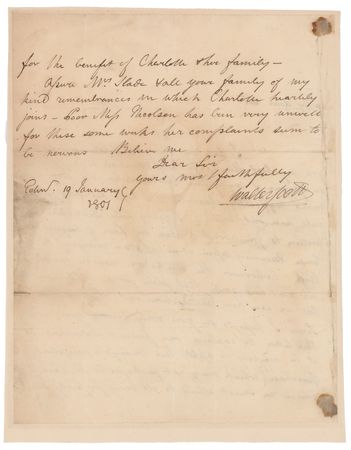 for the benefit of Charlotte & her family –
Assure Mrs. Slade & all your family of my
kind remembrances in which Charlotte heartily
joins – poor Miss Nicolson has been very unwell
for these some weeks her complaints seem to
be nervous Believe me
Dear Sir
yours most faithfully
Walter Scott
Edinr. 19 January
1801